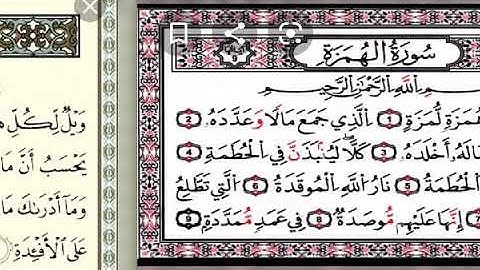 سُورَةُ الهُمَزَةِ
ـمِ اللَّهِ الرَّحْمَٰنِ الرَّحِيمِ
هُمَزَةٍ لُّمَزَةٍ ① الَّذِي جَمَعَ مَالًا وَعَدَّدَهُ ②
مَالَهُ أَخْلَدَهُ ③ كَلَّا ۖ لَيُنبَذَنَّ فِي الْحُطَمَةِ ④
الْحُطَمَةُ ⑤ نَارُ اللَّهِ الْمُوقَدَةُ ⑥ الَّتِي تَطَّلِعُ
7 إِنَّهَا عَلَيْهِم مُّوصَدَةٌ ⑧ فِي عَمَدٍ مُّمَدَّدَةٍ ⑨
وَيْلٌ لِّكُلِّ
يَحْسَبُ أَنَّ مَا
وَمَا أَدْرَىٰكَ مَا
عَلَى الْأَفْـِٔدَةِ